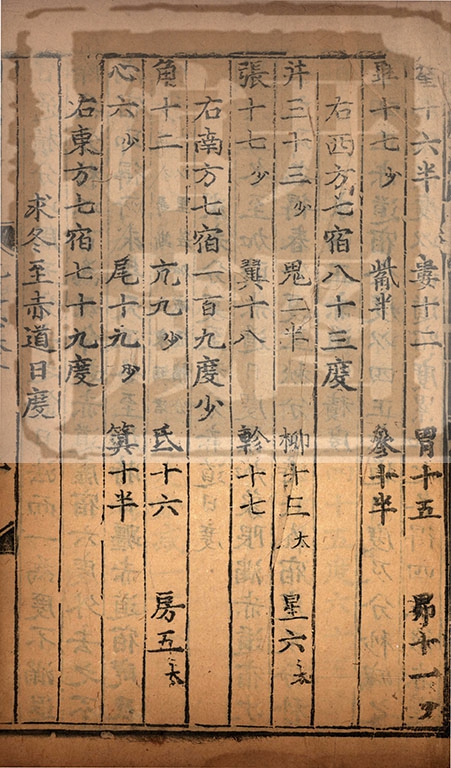 奎十六半 婁十二 胃十五 昴十一少
畢十七少 觜半 參十半
右西方七宿八十三度
井三十三少 鬼二半 柳十三太 星六太
張十七少 翼十八 軫十七
右南方七宿一百九度少
角十二 亢九少 氐十六 房五太
心六少 尾十九少 箕十半
右東方七宿七十九度
求冬至赤道日度